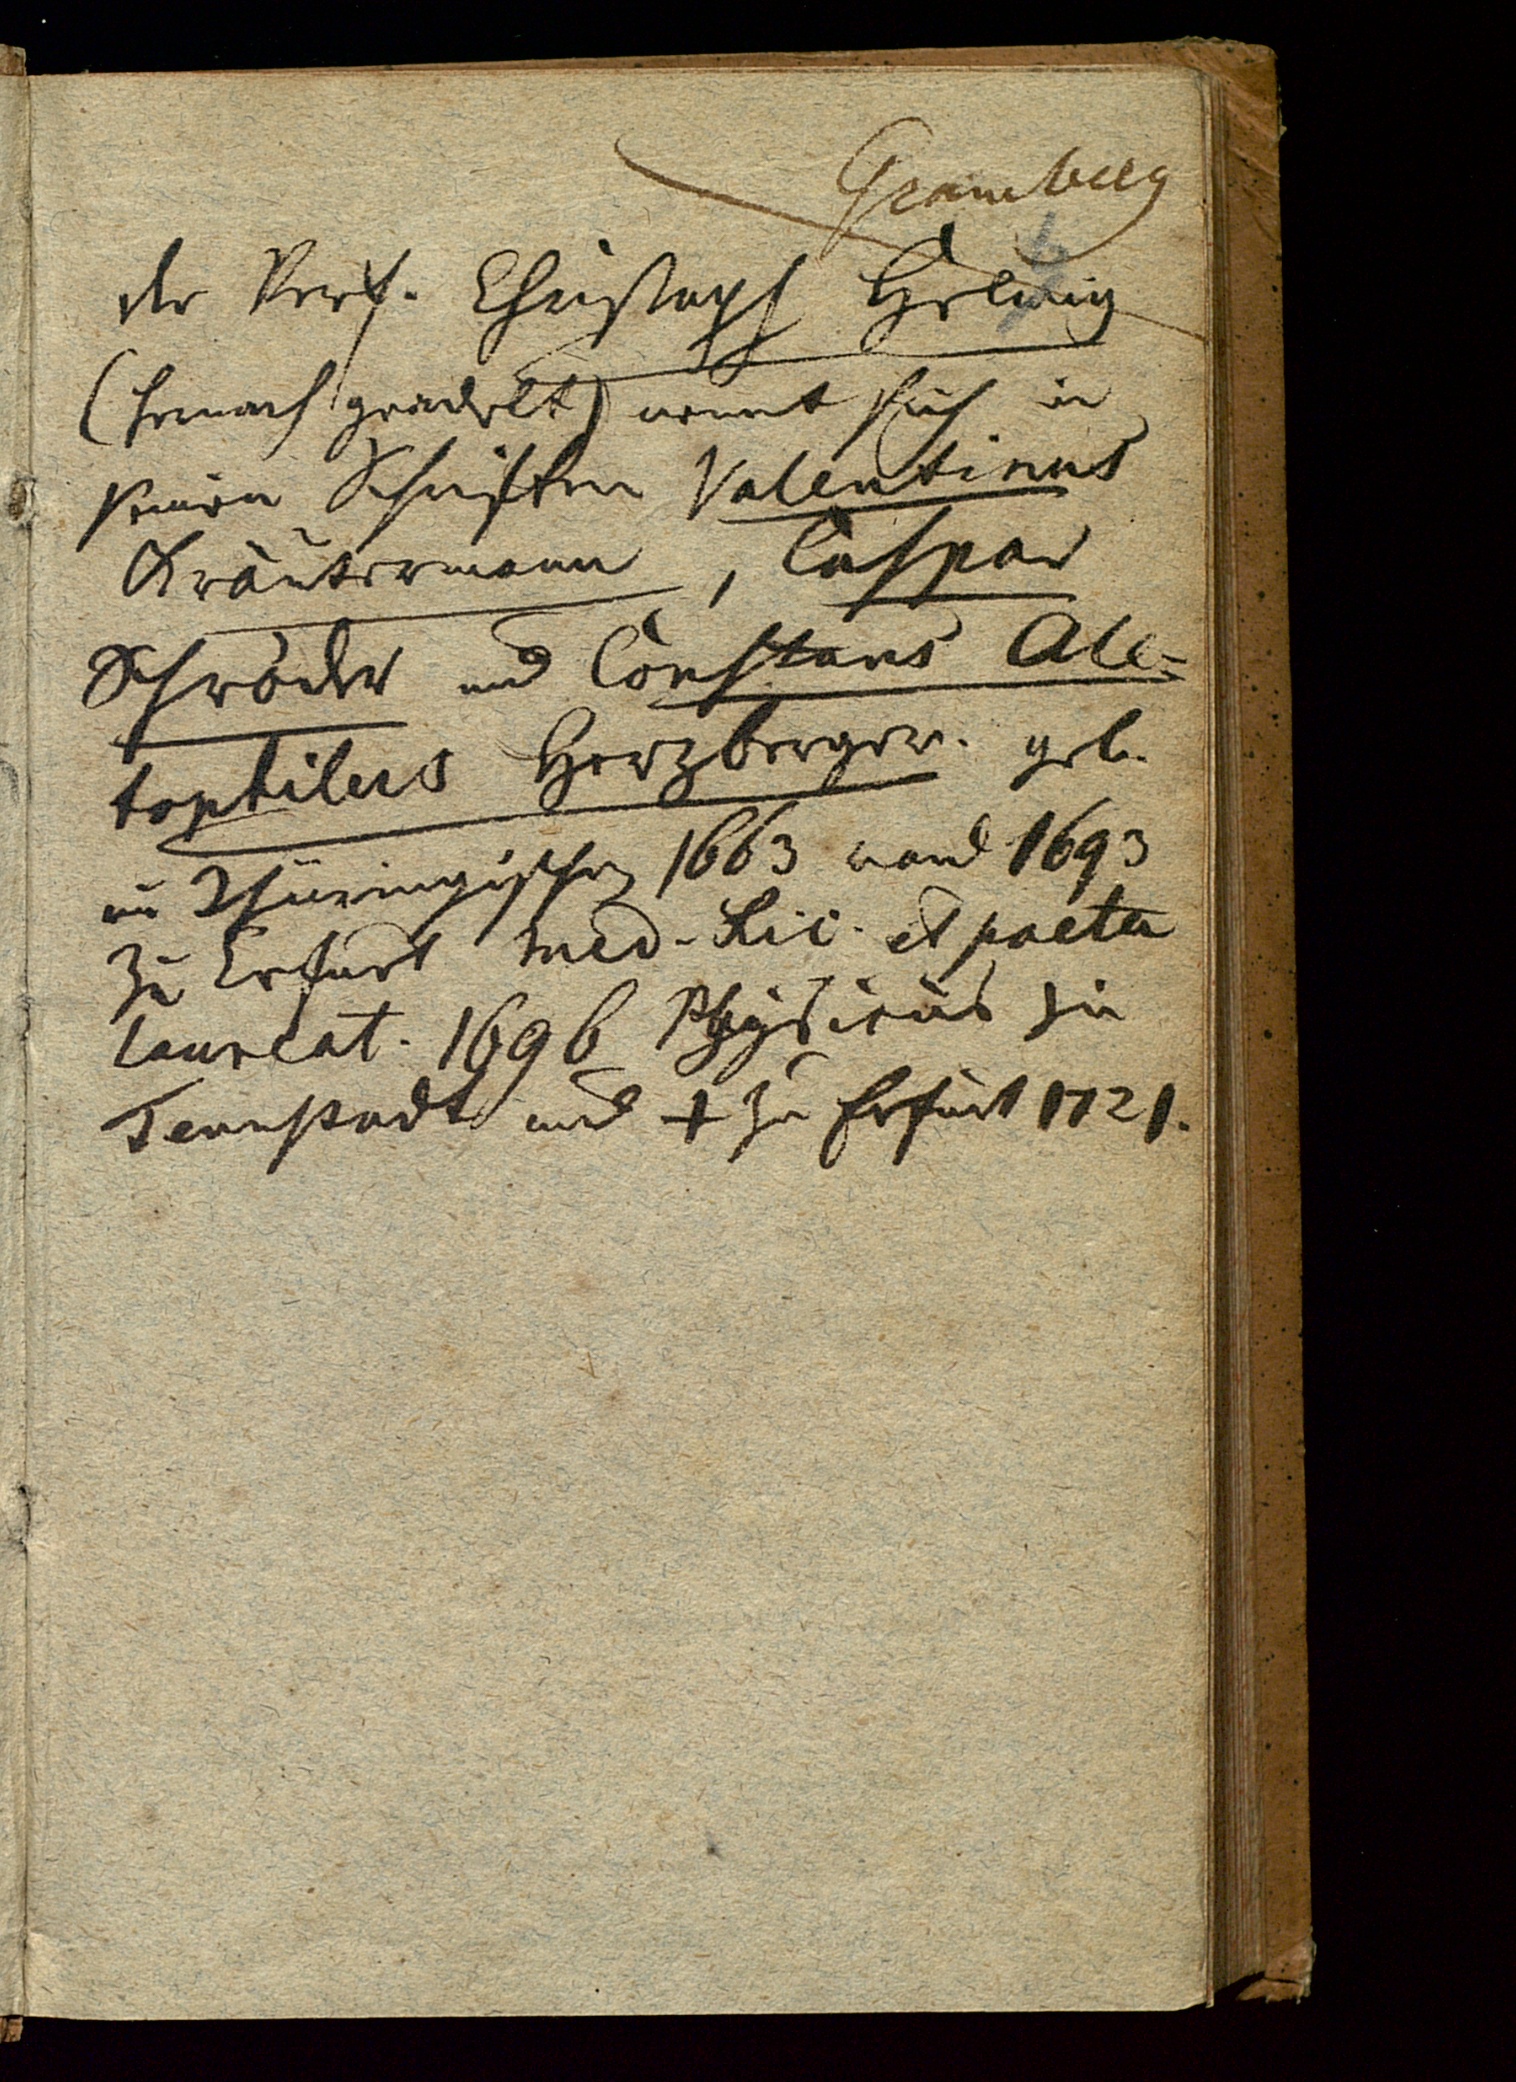 Gramberg
der Verf. Christoph Helwig
(hernach geadelt) nennt sich in
seinen Schriften Valentinus
Kräutermann, Caspar
Schröder und Constans Ale-
tophilus Herzberger. geb.
im Thüringischen 1663 ward 1693
zu Erfurt med. Lic. et poeta
laureat. 1696 Physicus zu
Tennstadt und + zu Erfurt 1721.